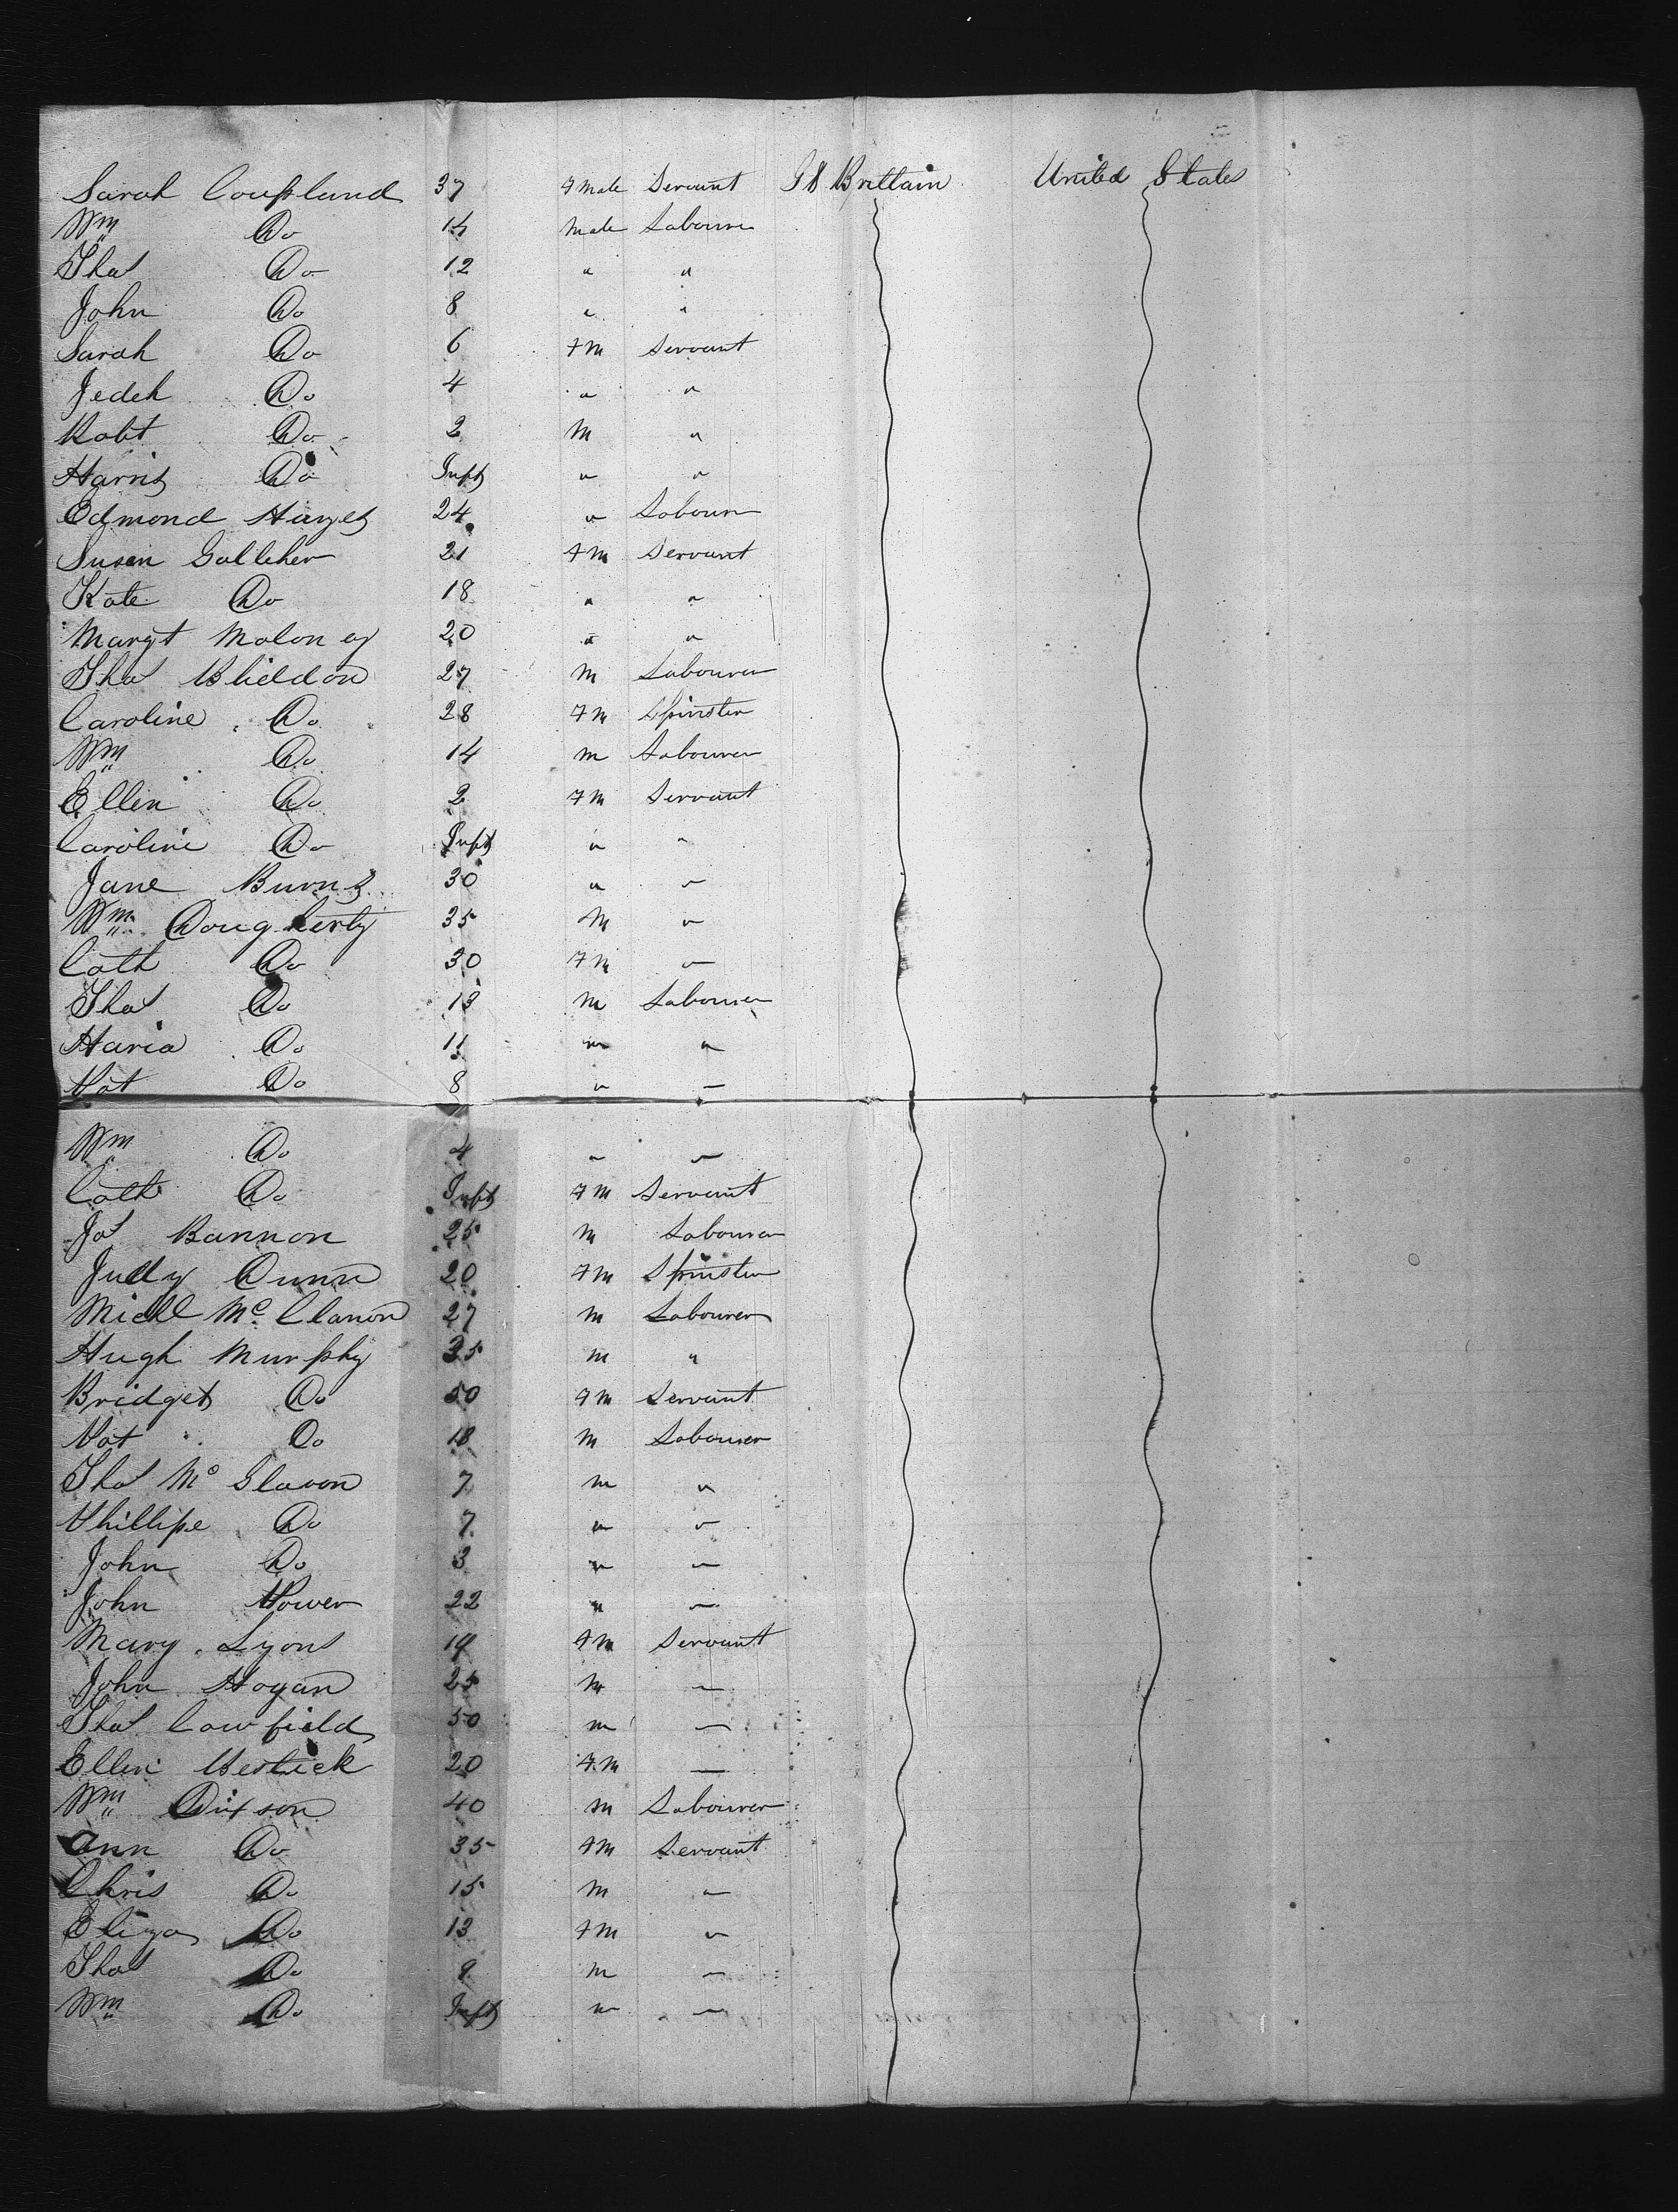 Sarah Coupland 37 Fmale Servant Gt Brittain United States
Wm Do 14 Male Labourer
Thos Do 12 " "
John Do 8 " "
Sarah Do 6 Fm Servant
Jedeh Do 4 " "
Robt Do 2 M "
Harris Do Inft " "
Edmond Hayes 24 " Labourer
Susan Galleher 21 Fm Servant
Kate Do 18 " "
Margt Maloney 20 " "
Thos Bliddon 27 M Labourer
Caroline Do 28 Fm Spinster
Wm Do 14 m Labourer
Ellen Do 2 Fm Servant
Caroline Do Inft " "
Jane Burns 30 " "
Wm Dougherty 35 M "
Cath Do 30 Fm "
Thos Do 13 M Labourer
Haria Do 11 " "
Pat Do 8 " "
Wm Do 4 " "
Cath Do Inft Fm Servant
Jas Bannon 25 M Labourer
Judy Dunn 20 Fm Spinster
Michl Mc Clanon 27 M Labourer
Hugh Murphy 35 m "
Bridget Do 50 Fm Servant
Pat Do 18 M Labourer
Thos Mc Glavon 7 m "
Phillipe Do 7 " "
John Do 3 " "
John Power 22 " "
Mary Lyons 19 Fm Servant
John Hogan 25 M "
Thos Cawfield 50 m "
Ellen 20 Fm "
Wm Dixson 40 m Labourer
Ann Do 35 Fm Servant
Chris Do 15 M "
Eliza Do 13 Fm "
Thos Do 8 m "
Wm Do Inft " "